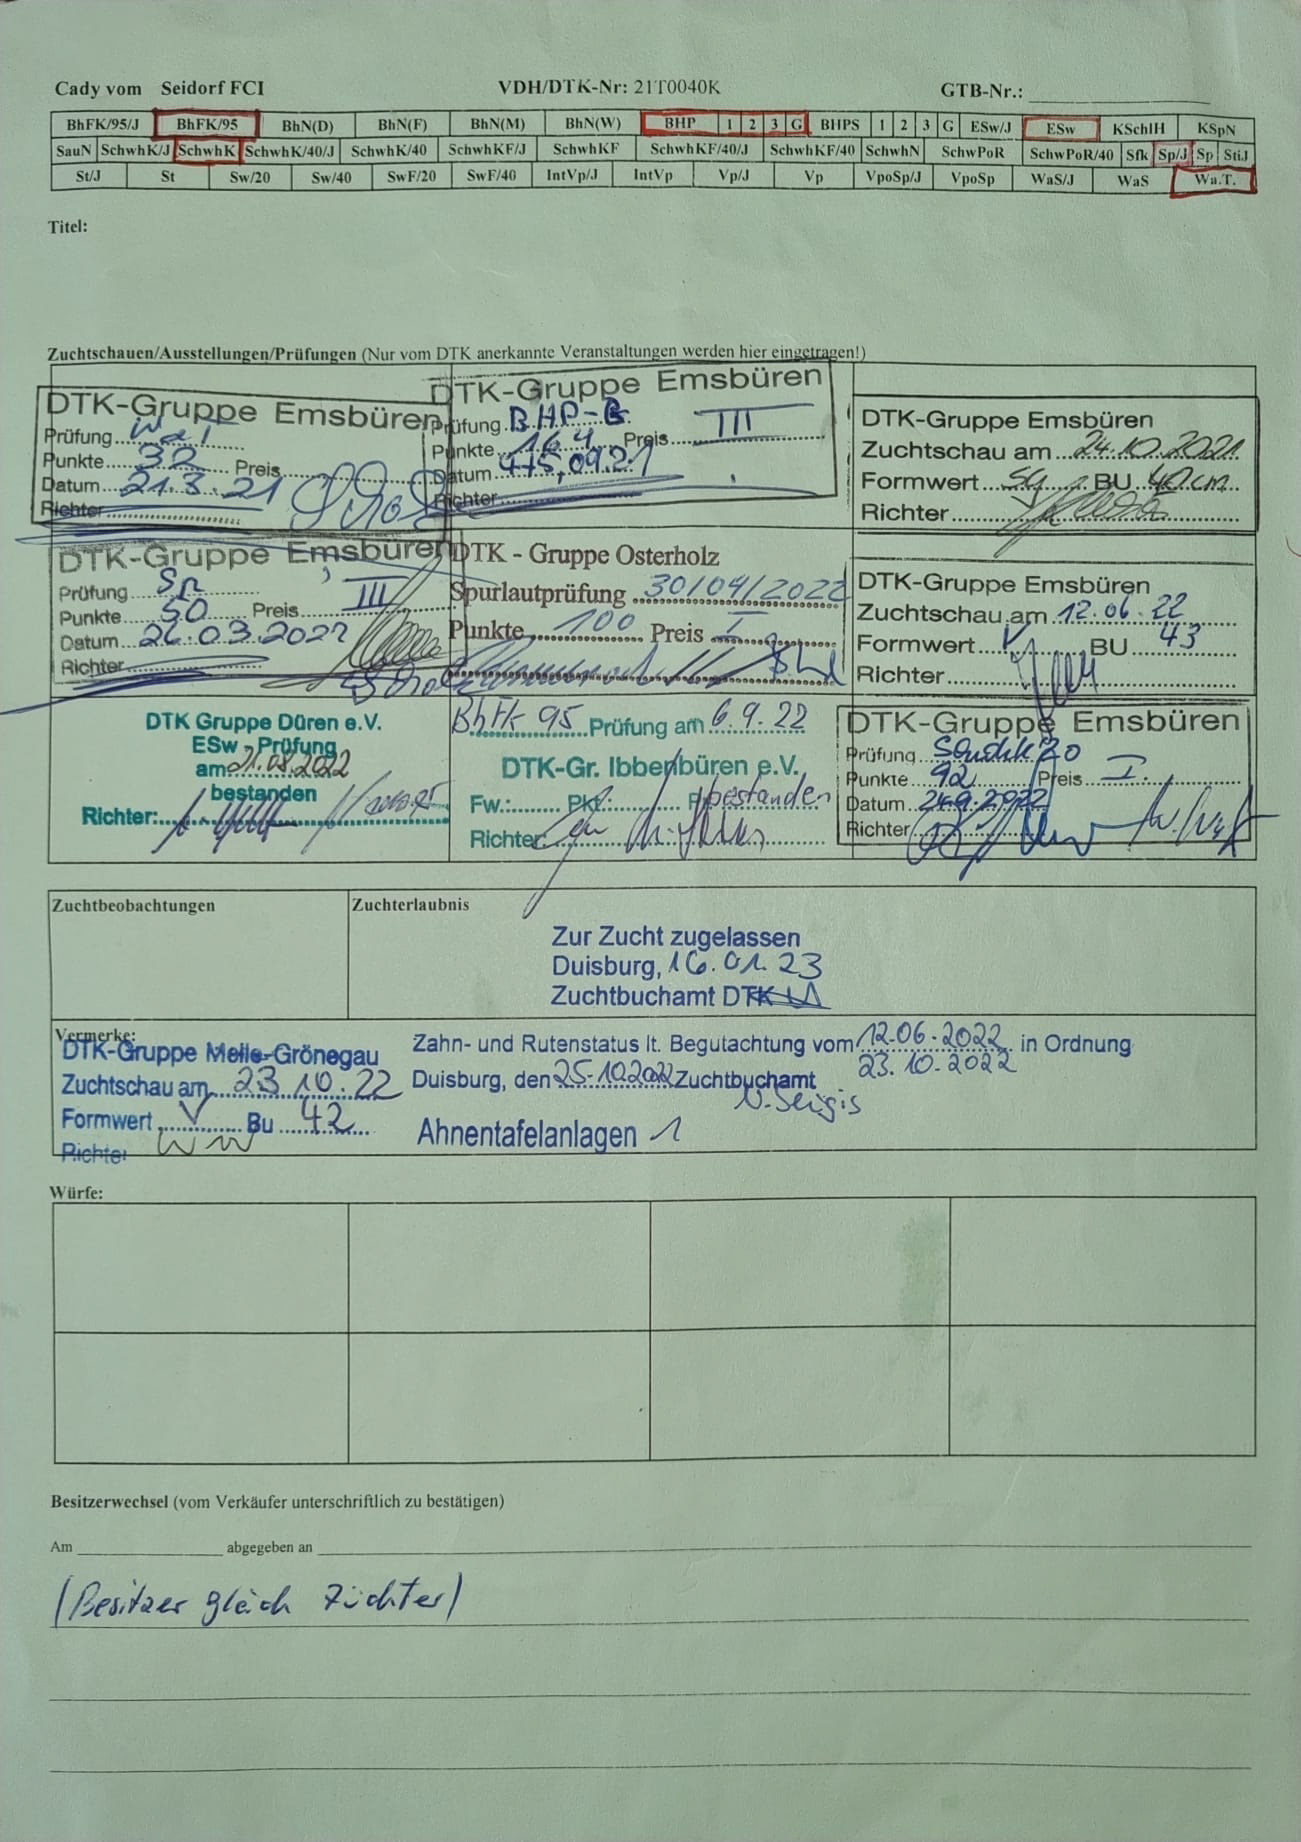 Cady vom Seidorf FCI VDH/DTK-Nr: 21T0040K GTB-Nr.:
BhFK/95/J BhFK/95 BhN(D) BhN(F) BhN(M) BhN(W) BHP 1 2 3 G BHPS 1 2 3 G ESw/J ESw KSchlH KSpN
SauN SchwhK/J SchwhK SchwhK/40/J SchwhK/40 SchwhKF/J SchwhKF SchwhKF/40/J SchwhKF/40 SchwhN SchwPoR SchwPoR/40 Sfk Sp/J Sp StiJ
St/J St Sw/20 Sw/40 SwF/20 SwF/40 IntVp/J IntVp Vp/J Vp VpoSp/J VpoSp WaS/J WaS Wa.T.
Titel:
Zuchtschauen/Ausstellungen/Prüfungen (Nur vom DTK anerkannte Veranstaltungen werden hier eingetragen!)
DTK-Gruppe Emsbüren
Prüfung
Punkte 32 Preis
Datum 21.3.21
Richter
DTK-Gruppe Emsbüren
Prüfung BHP-G
Punkte 164 Preis III
Datum 4/5.09.21
Richter
DTK-Gruppe Emsbüren
Zuchtschau am 24.10.2021
Formwert sg BU 42cm
Richter
DTK-Gruppe Emsbüren
Prüfung Sp
Punkte 50 Preis III
Datum 26.03.2022
Richter
DTK - Gruppe Osterholz
Spurlautprüfung 30/04/2022
Punkte 100 Preis I
DTK-Gruppe Emsbüren
Zuchtschau am 12.06.22
Formwert V BU 43
Richter
DTK Gruppe Düren e.V.
ESw - Prüfung
am 21.08.2022
bestanden
Richter:
BhFk 95 Prüfung am 6.9.22
DTK-Gr. Ibbenbüren e.V.
Fw.: Pkt: P bestanden
Richter:
DTK-Gruppe Emsbüren
Prüfung
Punkte 92 Preis I.
Datum 24.9.2022
Richter
Zuchtbeobachtungen
Zuchterlaubnis
Zur Zucht zugelassen
Duisburg, 16.01.23
Zuchtbuchamt DTK
Vermerke:
DTK-Gruppe Melle-Grönegau
Zuchtschau am 23 10.22
Formwert V Bu 42
Richter
Zahn- und Rutenstatus lt. Begutachtung vom 12.06.2022 in Ordnung
23.10.2022
Duisburg, den 25.10.2022 Zuchtbuchamt
Ahnentafelanlagen 1
Würfe:
Besitzerwechsel (vom Verkäufer unterschriftlich zu bestätigen)
Am abgegeben an
(Besitzer gleich Züchter)